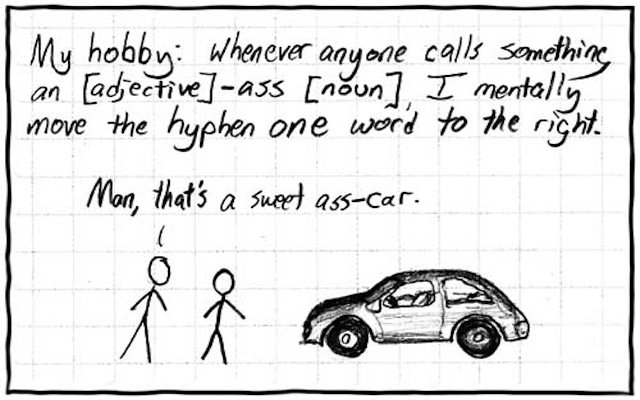 My hobby: Whenever anyone calls something
an [adjective]-ass [noun], I mentally
move the hyphen one word to the right.
Man, that's a sweet ass-car.